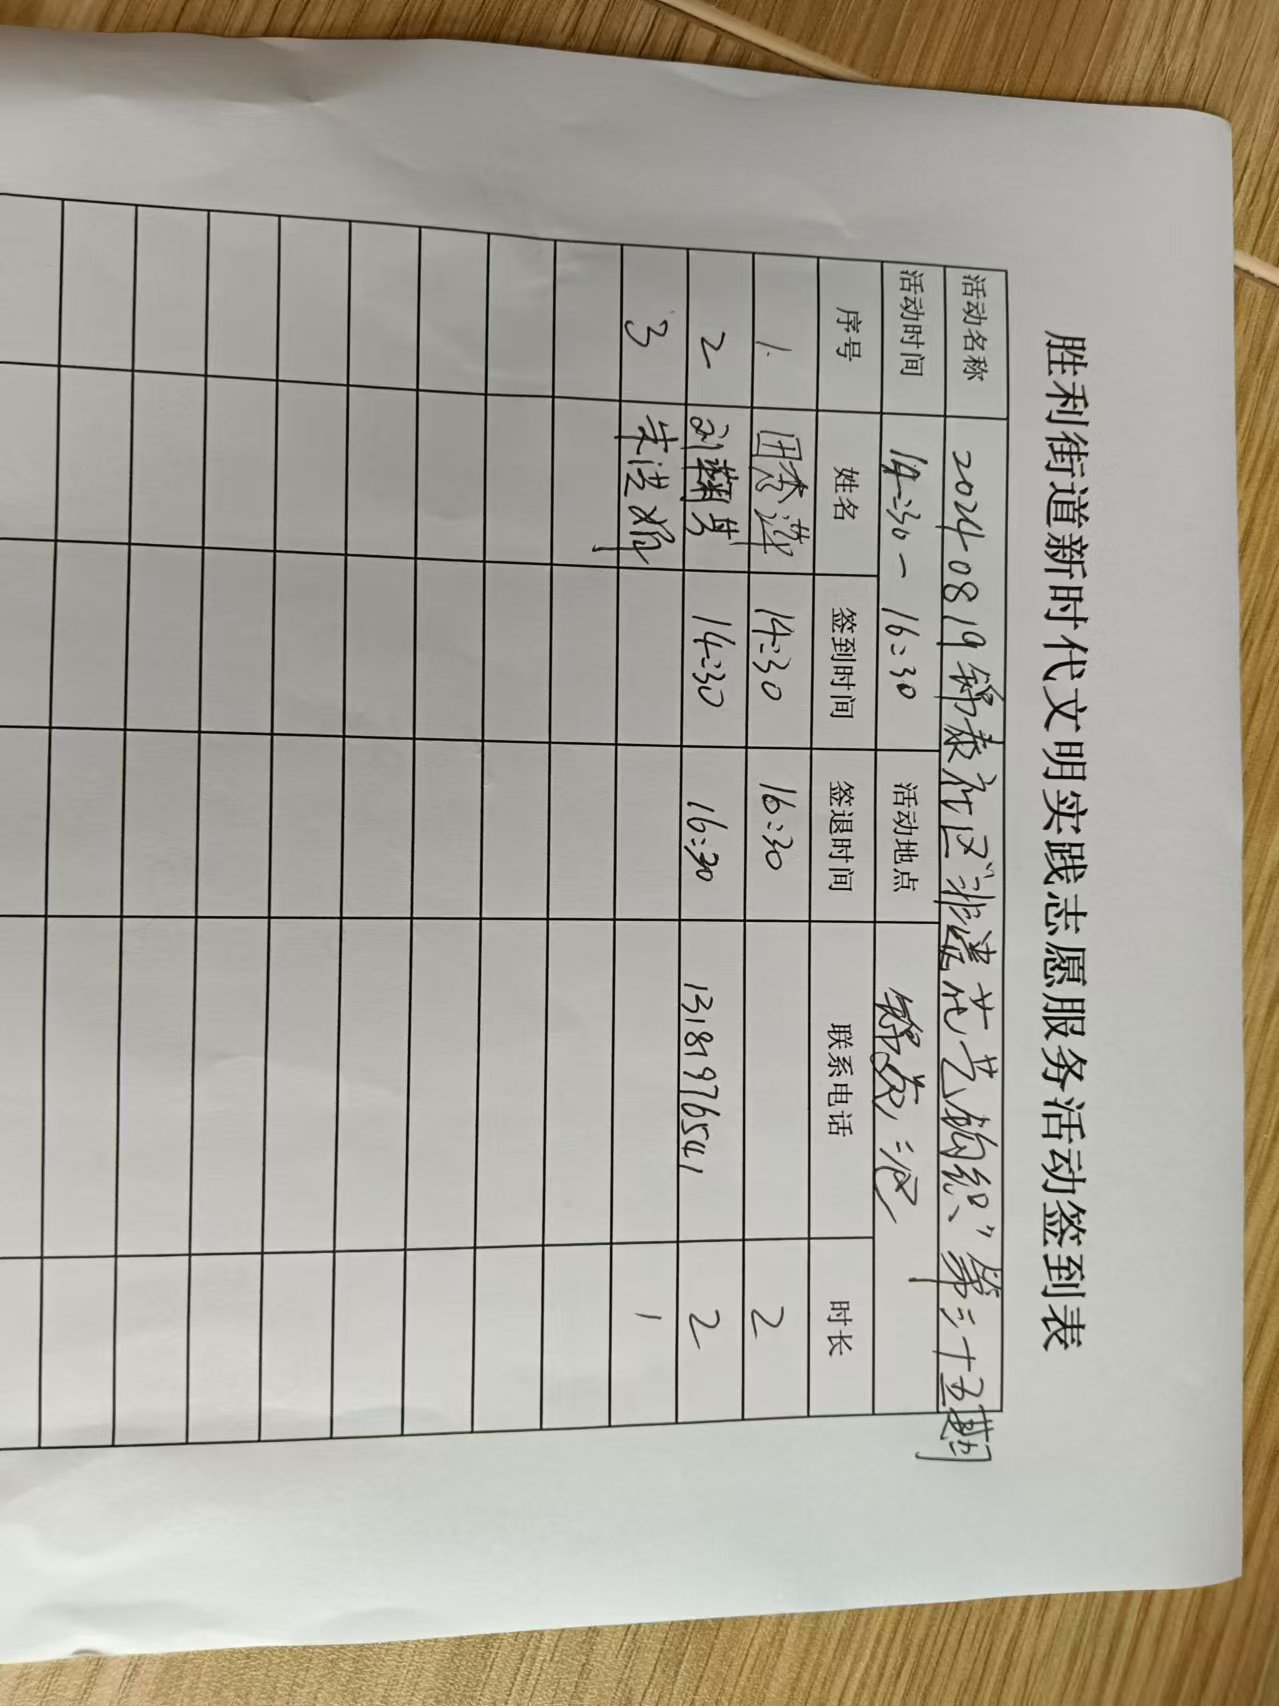 胜利街道新时代文明实践志愿服务活动签到表
活动名称 20240819锦泰社区“非遗花艺钩织”第三十五期
活动时间 14:30-16:30 活动地点 锦苑三区
序号 姓名 签到时间 签退时间 联系电话 时长
1. 田秀萍 14:30 16:30 2
2 刘菊英 14:30 16:30 13181976541 2
3 朱洪 1